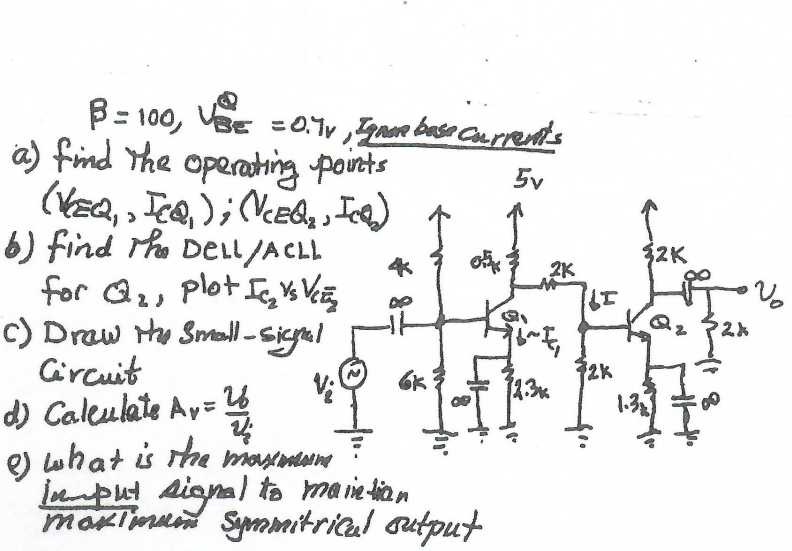 β = 100, V_BE^Q = 0.7v, Ignore base Currents
a) find the operating points
(VCEQ1, ICQ1); (VCEQ2, ICQ2)
b) find the DCLL/ACLL
for Q2, plot IC2 vs VCE2
c) Draw the Small-signal
Circuit
d) Calculate Av = vo/vi
e) what is the maximum
input signal to maintian
maximum symmitrical output
5v
4k
0.5k
2K
2K
∞
∞
I
vo
Q1
~IC1
Q2
2k
Vi
6K
∞
2.3k
2K
1.3k
∞